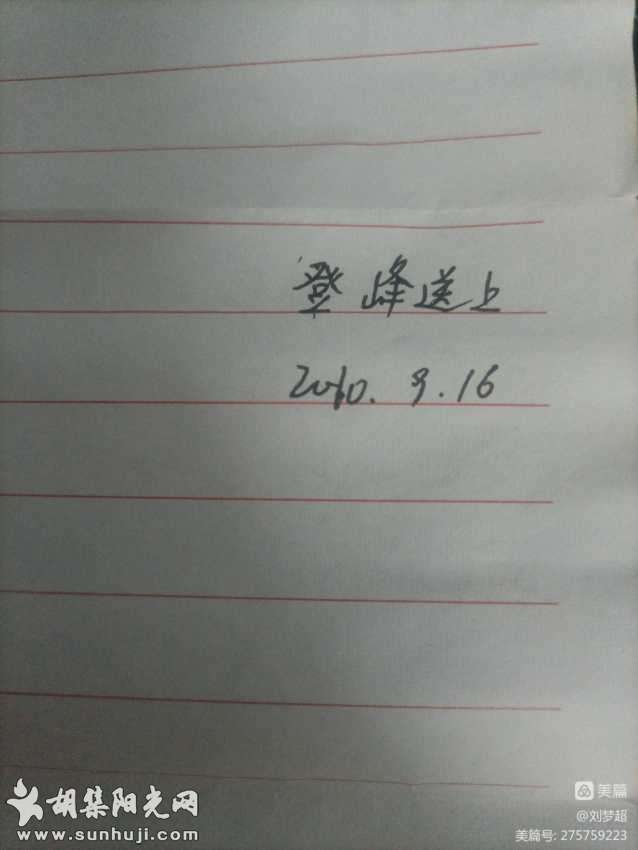 登峰送上
2010.9.16
胡集阳光网
www.sunhuji.com
美篇
@刘梦超
美篇号: 275759223